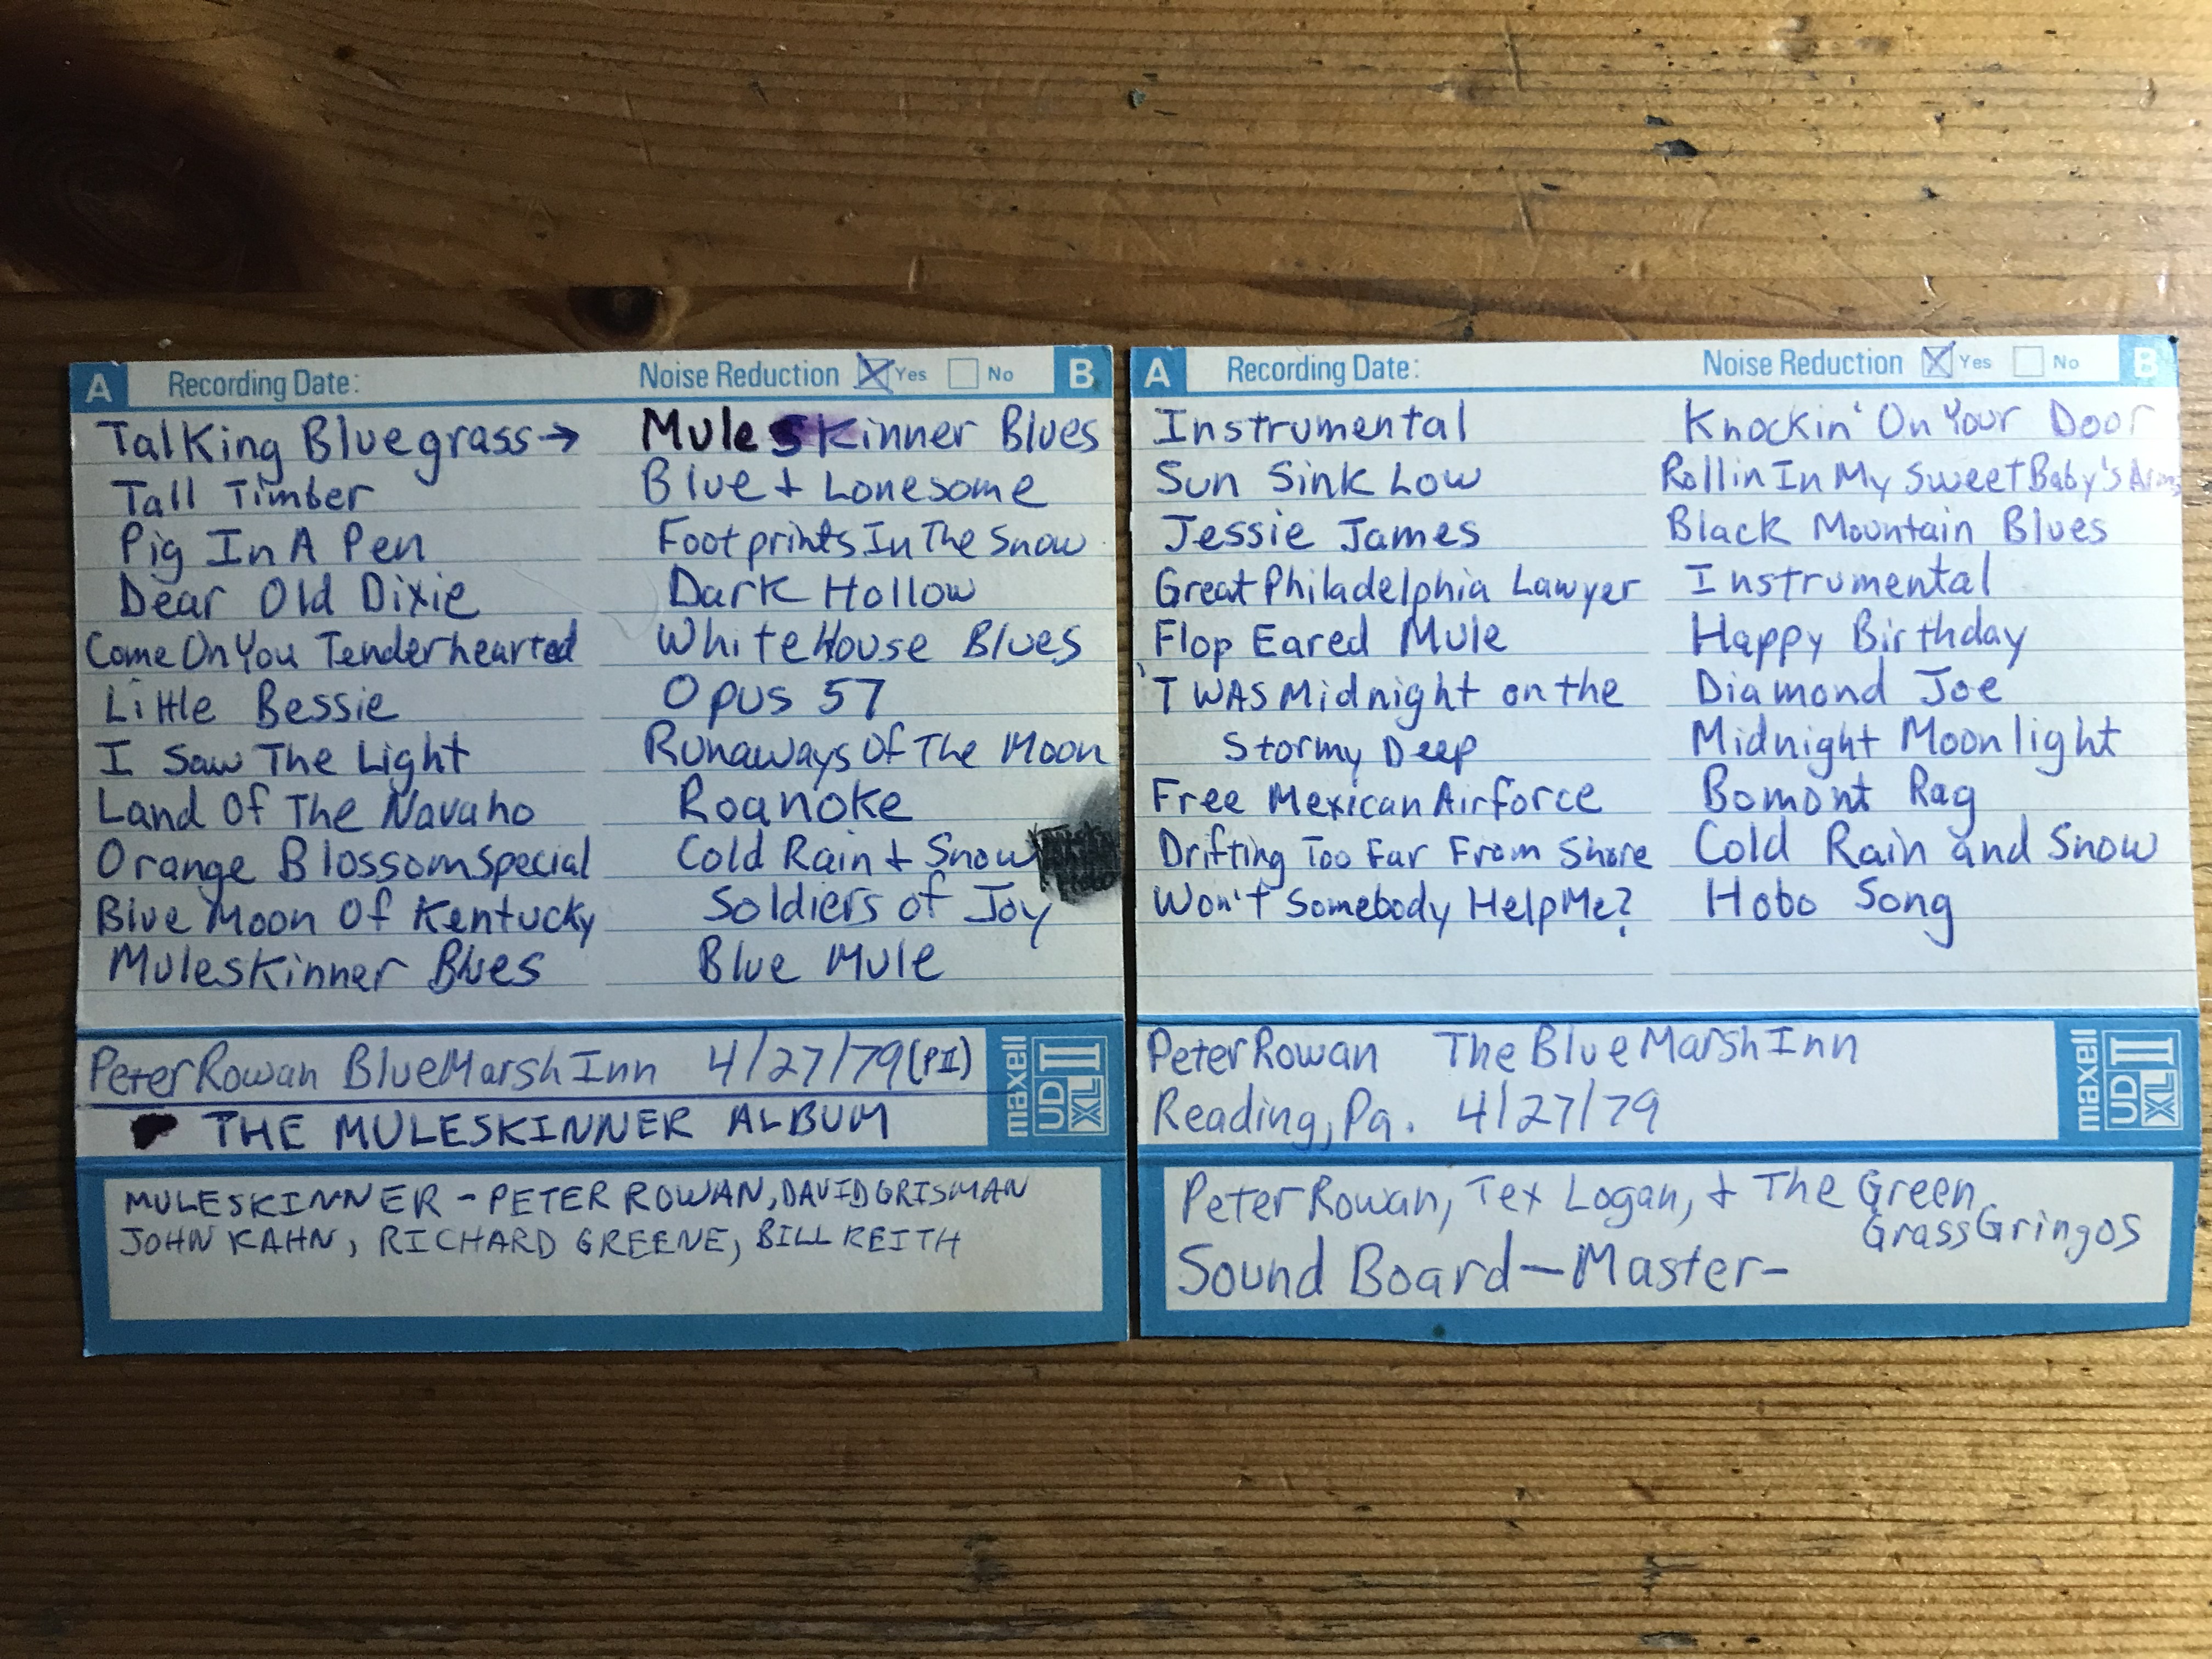 A Recording Date: Noise Reduction Yes No B
Talking Bluegrass→
Tall Timber
Pig In A Pen
Dear Old Dixie
Come On You Tenderhearted
Little Bessie
I Saw The Light
Land of The Navaho
Orange Blossom Special
Blue Moon Of Kentucky
Muleskinner Blues
Muleskinner Blues
Blue + Lonesome
Footprints In The Snow
Dark Hollow
White House Blues
Opus 57
Runaways Of The Moon
Roanoke
Cold Rain + Snow
Soldiers of Joy
Blue Mule
Peter Rowan Blue Marsh Inn 4/27/79 (PII)
THE MULESKINNER ALBUM
maxell
UD XL II
MULESKINNER - PETER ROWAN, DAVID GRISMAN
JOHN KAHN, RICHARD GREENE, BILL KEITH
A Recording Date: Noise Reduction Yes No B
Instrumental
Sun Sink Low
Jessie James
Great Philadelphia Lawyer
Flop Eared Mule
'TWAS Midnight on the
Stormy Deep
Free Mexican Airforce
Drifting Too Far From Shore
Won't Somebody Help Me?
Knockin' On Your Door
Rollin In My Sweet Baby's Arms
Black Mountain Blues
Instrumental
Happy Birthday
Diamond Joe
Midnight Moonlight
Bomont Rag
Cold Rain and Snow
Hobo Song
Peter Rowan The Blue Marsh Inn
Reading, Pa. 4/27/79
maxell
UD XL II
Peter Rowan, Tex Logan, + The Green
Grass Gringos
Sound Board—Master-